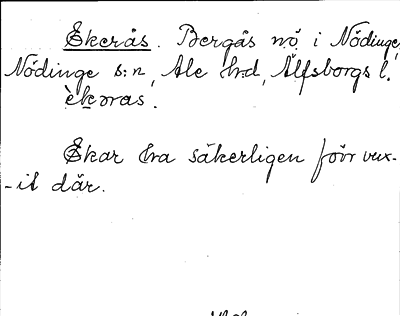 Ekerås. Bergås nö i Nödinge,
Nödinge s:n, Ale hrd, Älfsborgs l.
èkoras.
Ekar ha säkerligen förr vux-
-it där.